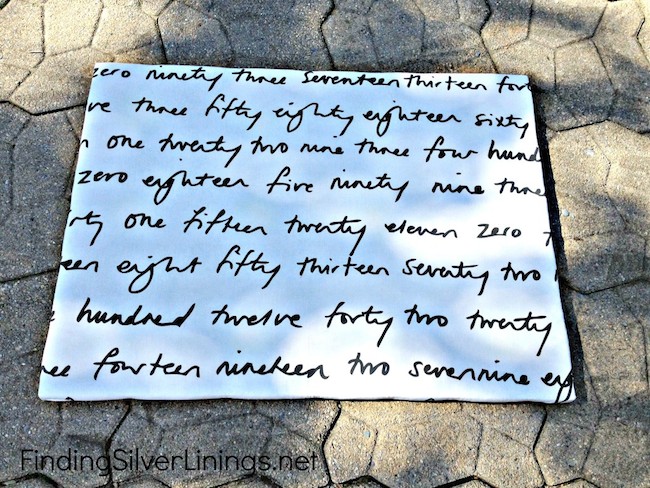 ero ninety three seventeen thirteen for
ve three fifty eighty eighteen sixty
one twenty two nine three four hund
zero eighteen five ninety nine three
ty one fifteen twenty eleven zero
een eight fifty thirteen seventy two
hundred twelve forty two twenty
ee fourteen nineteen two seven nine eig
FindingSilverLinings.net